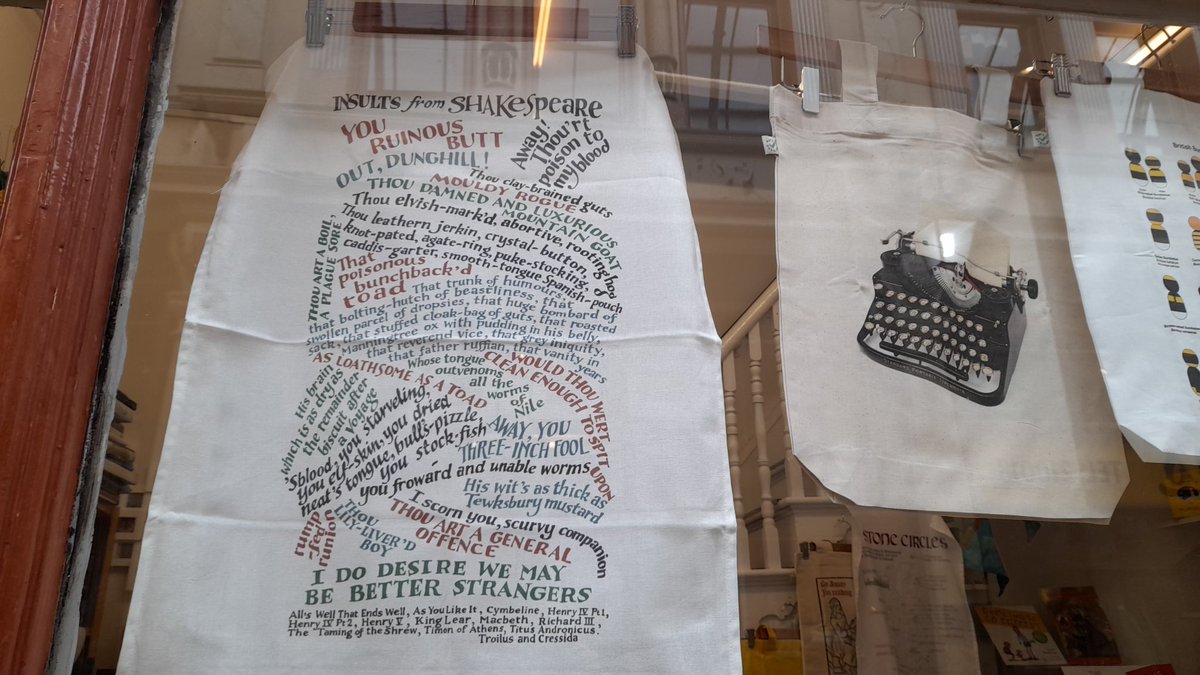 INSULTS from SHAKESPEARE
YOU
RUINOUS
BUTT
Away!
Thou'rt
poison to
my blood
OUT, DUNGHILL!
Thou clay-brained guts
MOULDY ROGUE
THOU DAMNED AND LUXURIOUS
MOUNTAIN GOAT
Thou elvish-mark'd, abortive, rooting hog
Thou leathern jerkin, crystal-button,
knot-pated, agate-ring, puke-stocking,
caddis-garter, smooth-tongue, Spanish-pouch
THOU ART A BOIL,
A PLAGUE SORE,
That
poisonous
bunchback'd
toad
That trunk of humours,
that bolting-hutch of beastliness, that
swollen parcel of dropsies, that huge bombard of
sack, that stuffed cloak-bag of guts, that roasted
Manningtree ox with pudding in his belly,
that reverend vice, that grey iniquity,
that father ruffian, that vanity in
years
AS LOATHSOME AS A TOAD
Whose tongue
outvenoms
all the
worms
of
Nile
WOULD THOU WERT
CLEAN ENOUGH TO SPIT UPON
His brain
which is as dry as
the remainder
biscuit after
a voyage
'Sblood, you starveling,
you elf-skin, you dried
neat's tongue, bull's-pizzle
you stock-fish
AWAY, YOU
THREE-INCH FOOL
you froward and unable worms
His wit's as thick as
Tewksbury mustard
rump
-fed
runion
THOU
LILY-LIVER'D
BOY
I scorn you, scurvy companion
THOU ART A GENERAL
OFFENCE
I DO DESIRE WE MAY
BE BETTER STRANGERS
All's Well That Ends Well, As You Like It, Cymbeline, Henry IV Pt1,
Henry IV Pt2, Henry V, King Lear, Macbeth, Richard III,
The Taming of the Shrew, Timon of Athens, Titus Andronicus.
Troilus and Cressida
STONE CIRCLES